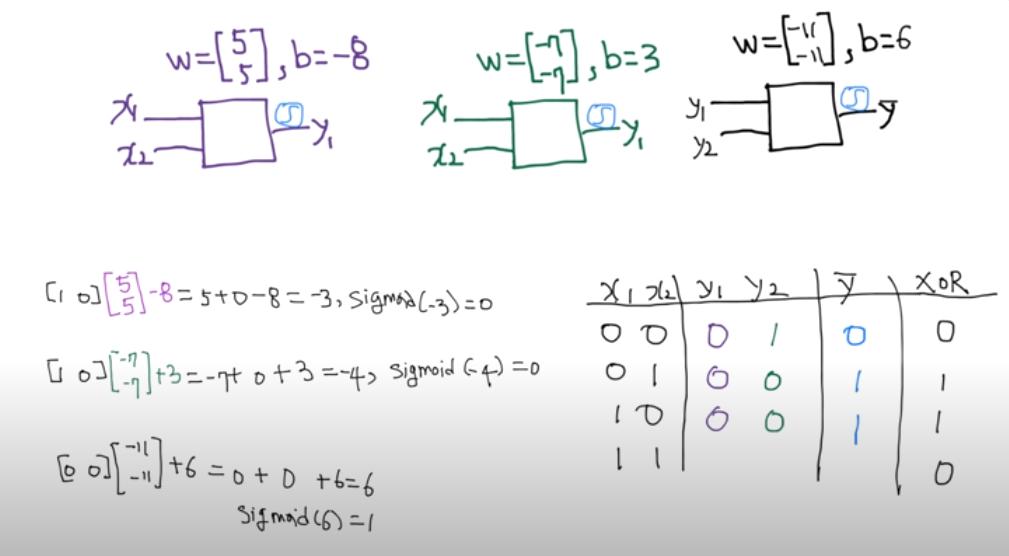 w=[5 5], b=-8
w=[-7 -7], b=3
w=[-11 -11], b=6
x1
x2
S
y1
x1
x2
S
y1
y1
y2
S
y̅
[1 0][5 5]-8=5+0-8=-3, sigmoid(-3)=0
[1 0][-7 -7]+3=-7+0+3=-4, sigmoid(-4)=0
[0 0][-11 -11]+6=0+0+6=6
sigmoid(6)=1
x1 x2 y1 y2 y̅ XOR
0 0 0 1 0 0
0 1 0 0 1 1
1 0 0 0 1 1
1 1 0